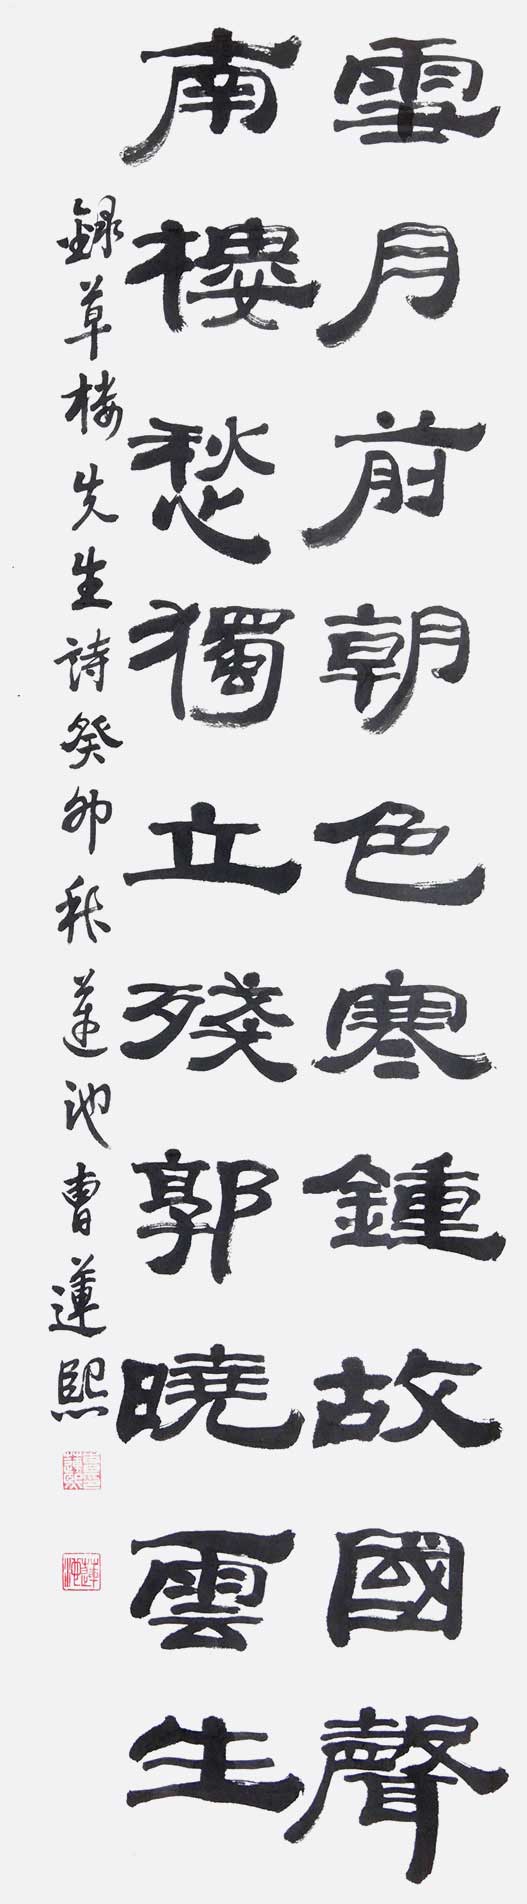 雪月前朝色寒鍾故國聲
南樓愁獨立殘郭曉雲生
録草楼先生詩癸卯秋蓮池曹蓮熙
蓮池